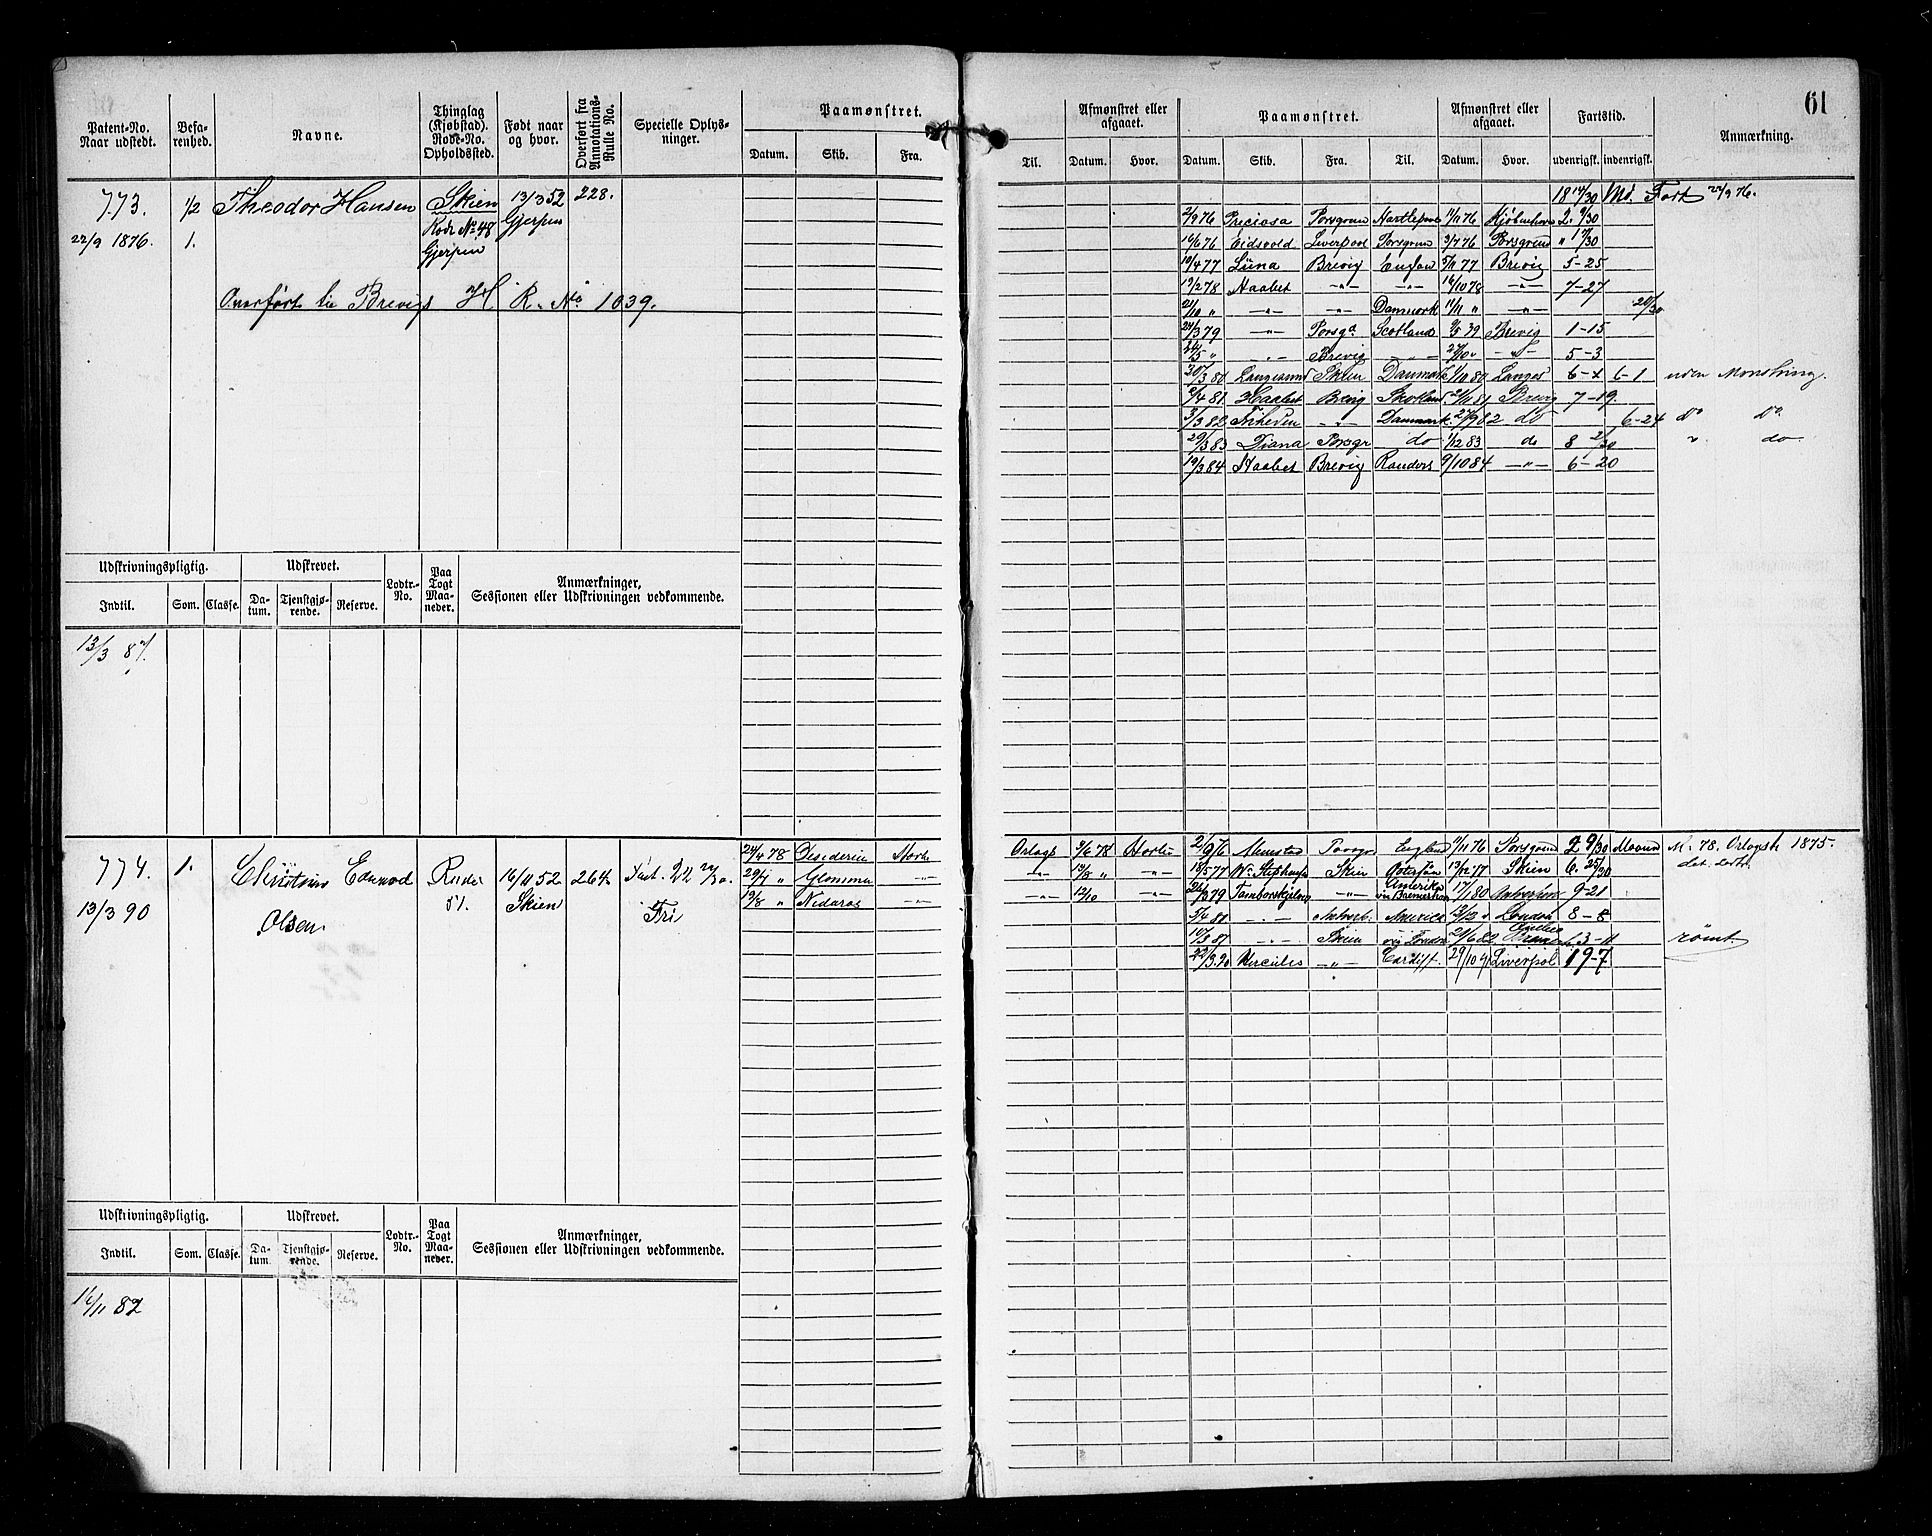 61
Patent-No. Naar udstedt.
Befarenhed.
Navne.
Thinglag (Kjøbstad). Rode-No. Opholdssted.
Født naar og hvor.
Overført fra Annotations-Rulle No.
Specielle Oplysninger.
Paamønstret.
Datum. Skib. Fra.
Afmønstret eller afgaaet.
Til. Datum. Hvor.
Paamønstret.
Datum. Skib. Fra. Til.
Afmønstret eller afgaaet.
Datum. Hvor.
Fartstid.
udenrigsk. indenrigsk.
Anmærkning.
773. 1/2 Theodor Hansen Skien 13/3 52 228.
22/9 1876. 1. Rode No 48 Gjerpen
Gjerpen
Overført til Brevigs H R. No 1039.
18 14/30 Md. Fart 22/9 76.
2/9 76 Preciosa Porsgrun Hartlepool 11/11 76 Kjøbenhavn 2. 9/30
16/6 76 Eidsvold Liverpool Porsgrun 3/7 76 Porsgrund " 17/30
10/4 77 Luna Brevig Englan 5/11 77 Brevig 5-25
19/2 78 Haabet -"- -"- 16/10 78 -"- 7-27
21/10 " -"- -"- Danmark 11/11 " -"- 20/30
24/3 79 -"- Porsgd Scotland 9/5 79 Brevig 1-15
24/5 " -"- Brevig -"- 27/10 " -"- 5-3
30/3 80 Langesund Skien Danmark 1/10 80 Langes 6-1 uden Monstring.
2/4 81 Haabet Brvig Skotland 21/11 81 Brevig 7-19.
3/3 82 Friheden -"- Danmark 27/9 82 do 6-24 do Do.
29/3 83 Diana Porsgr do 1/12 83 do 8 2/30 " do
19/3 84 Haabet Brevig Randers 9/10 84 -"- 6-20
Udskrivningspligtig. Udskrevet. Lodtr.-No. Paa Togt Maaneder. Anmærkninger, Sessionen eller Udskrivningen vedkommende.
Indtil. Som. Classe. Datum. Tjenstgjørende. Reserve.
13/3 87.
774. 1. Christian Edvard Olsen Rode 51. 16/11 52 Skien 264 Fri
13/3 90
24/4 78 Desideria Horte Orlogs 3/6 78 Horten
29/7 " Glommen -"- -"- 14/8 " -"-
19/8 " Nidaros -"- -"- 12/10 -"-
2/9 76 Porsgr England 11/11 76 Porsgrund 2 9/30 Maaned M. 78. Orlogsk 1875.
10/5 77 Skien 13/12 77 Skien 6. 25/30
22/3 79 -"- Amerika 17/1 80 Antverpen 9-21
5/4 81 -"- Antverb. America 12/2 " London 8-8
10/8 81 -"- Skien via London 21/6 82 rømt.
22/3 90 Hercules -"- Cardiff. 29/10 91 Liverpol 19-7
Udskrivningspligtig. Udskrevet. Lodtr.-No. Paa Togt Maaneder. Anmærkninger, Sessionen eller Udskrivningen vedkommende.
Indtil. Som. Classe. Datum. Tjenstgjørende. Reserve.
16/11 82